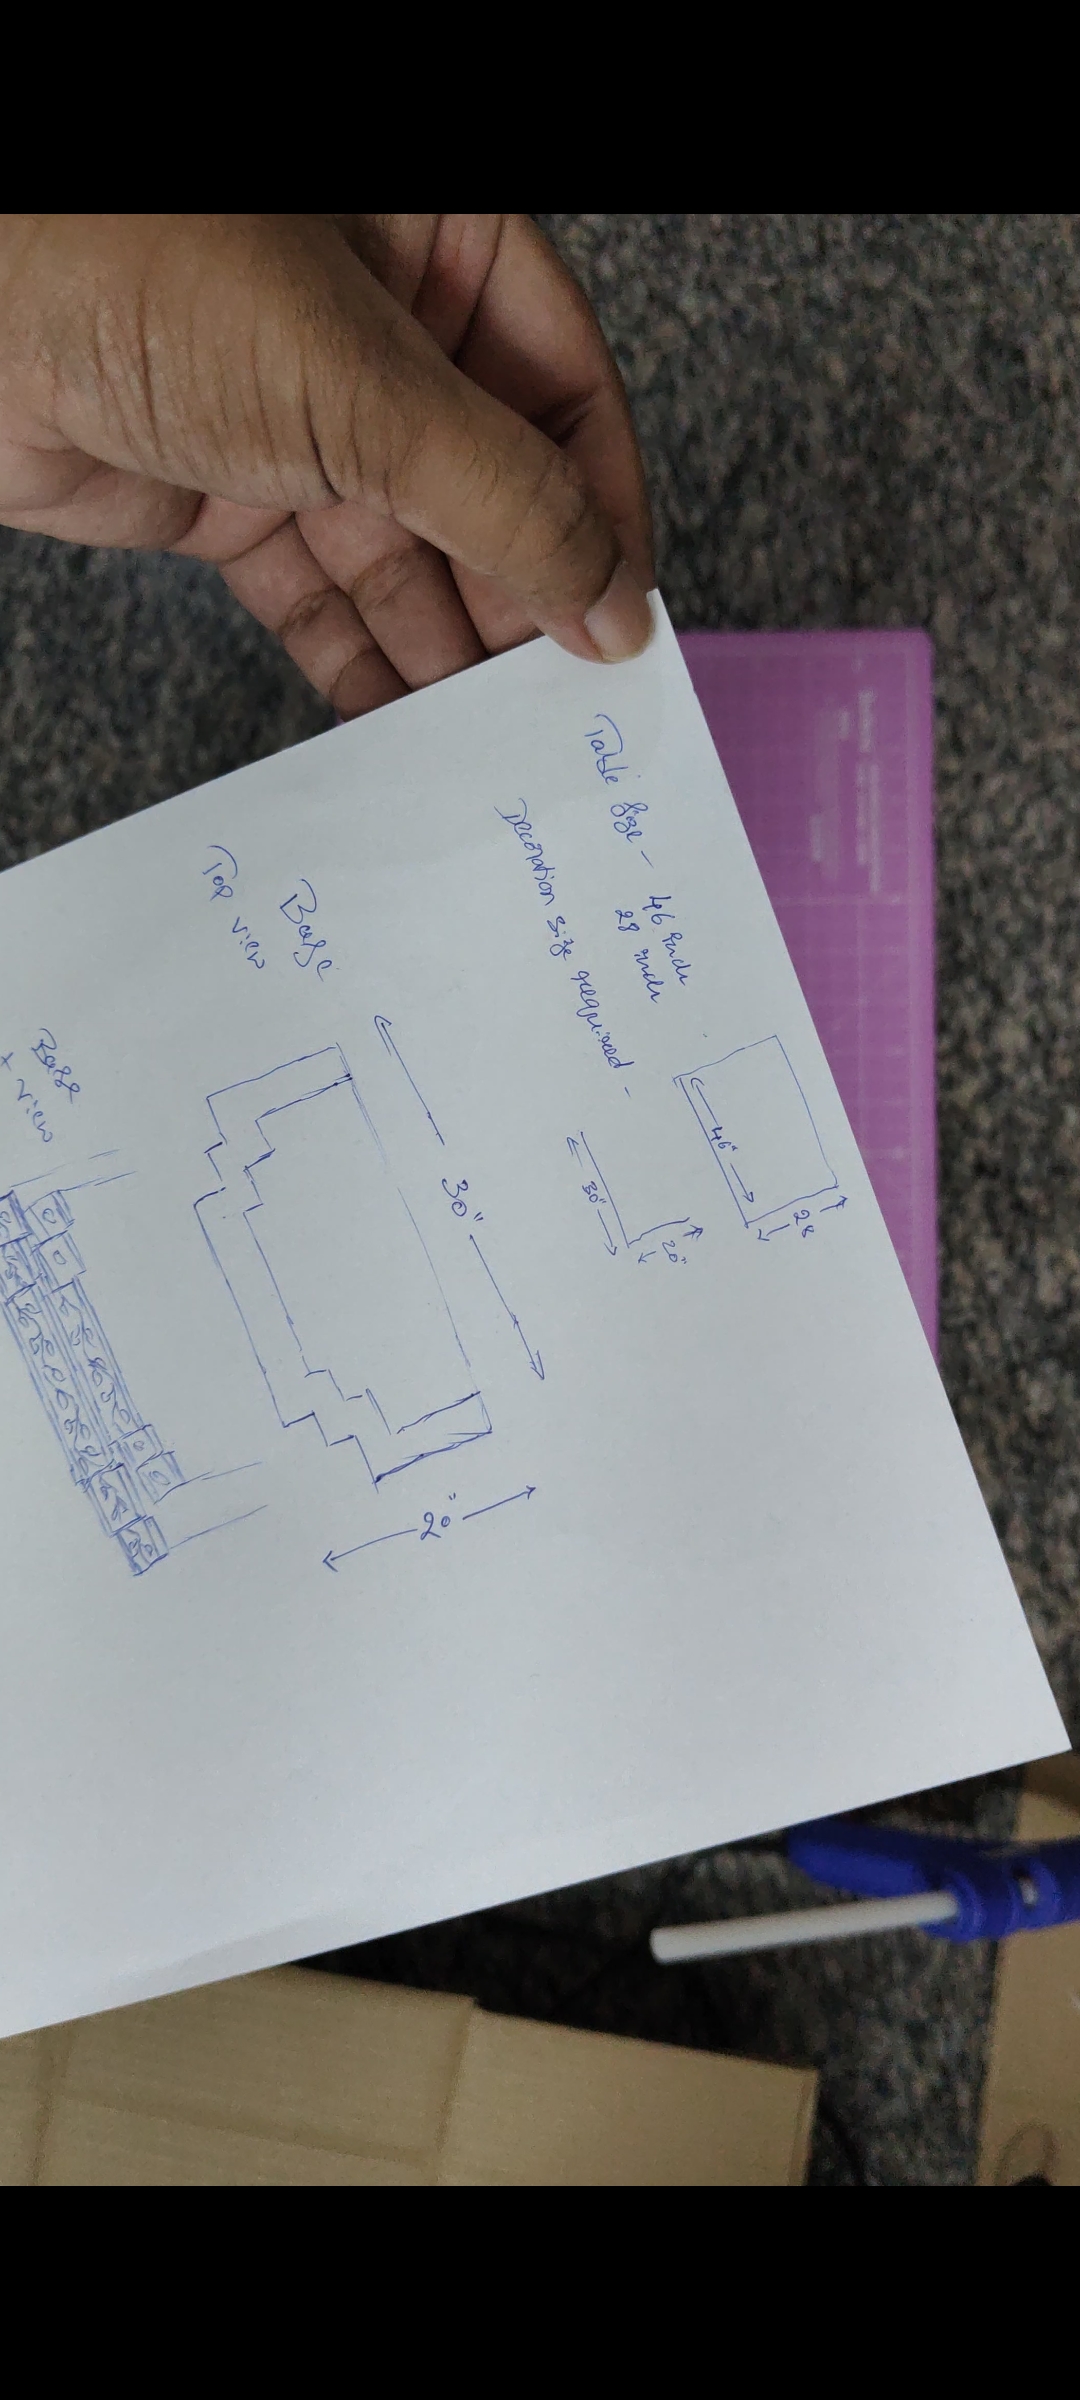 Table Size - 46 inch
28 inch
46"
28
Decoration size required -
30"
20"
Base
Top view
30"
20"
Base
view